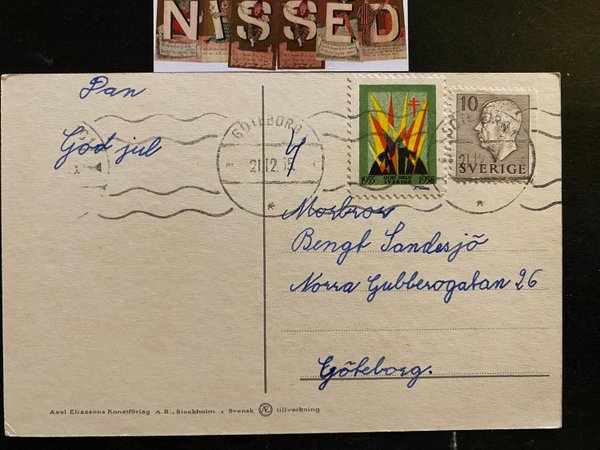 NISSED
Pan
God jul
GÖTEBORG
21.12.55
4
1955 GOD HELG 1956
SVERIGE
10
SVERIGE
Morbror
Bengt Sandesjö
Norra Gubberogatan 26
Göteborg.
Axel Eliassons Konstförlag A.B., Stockholm . Svensk Æ tillverkning